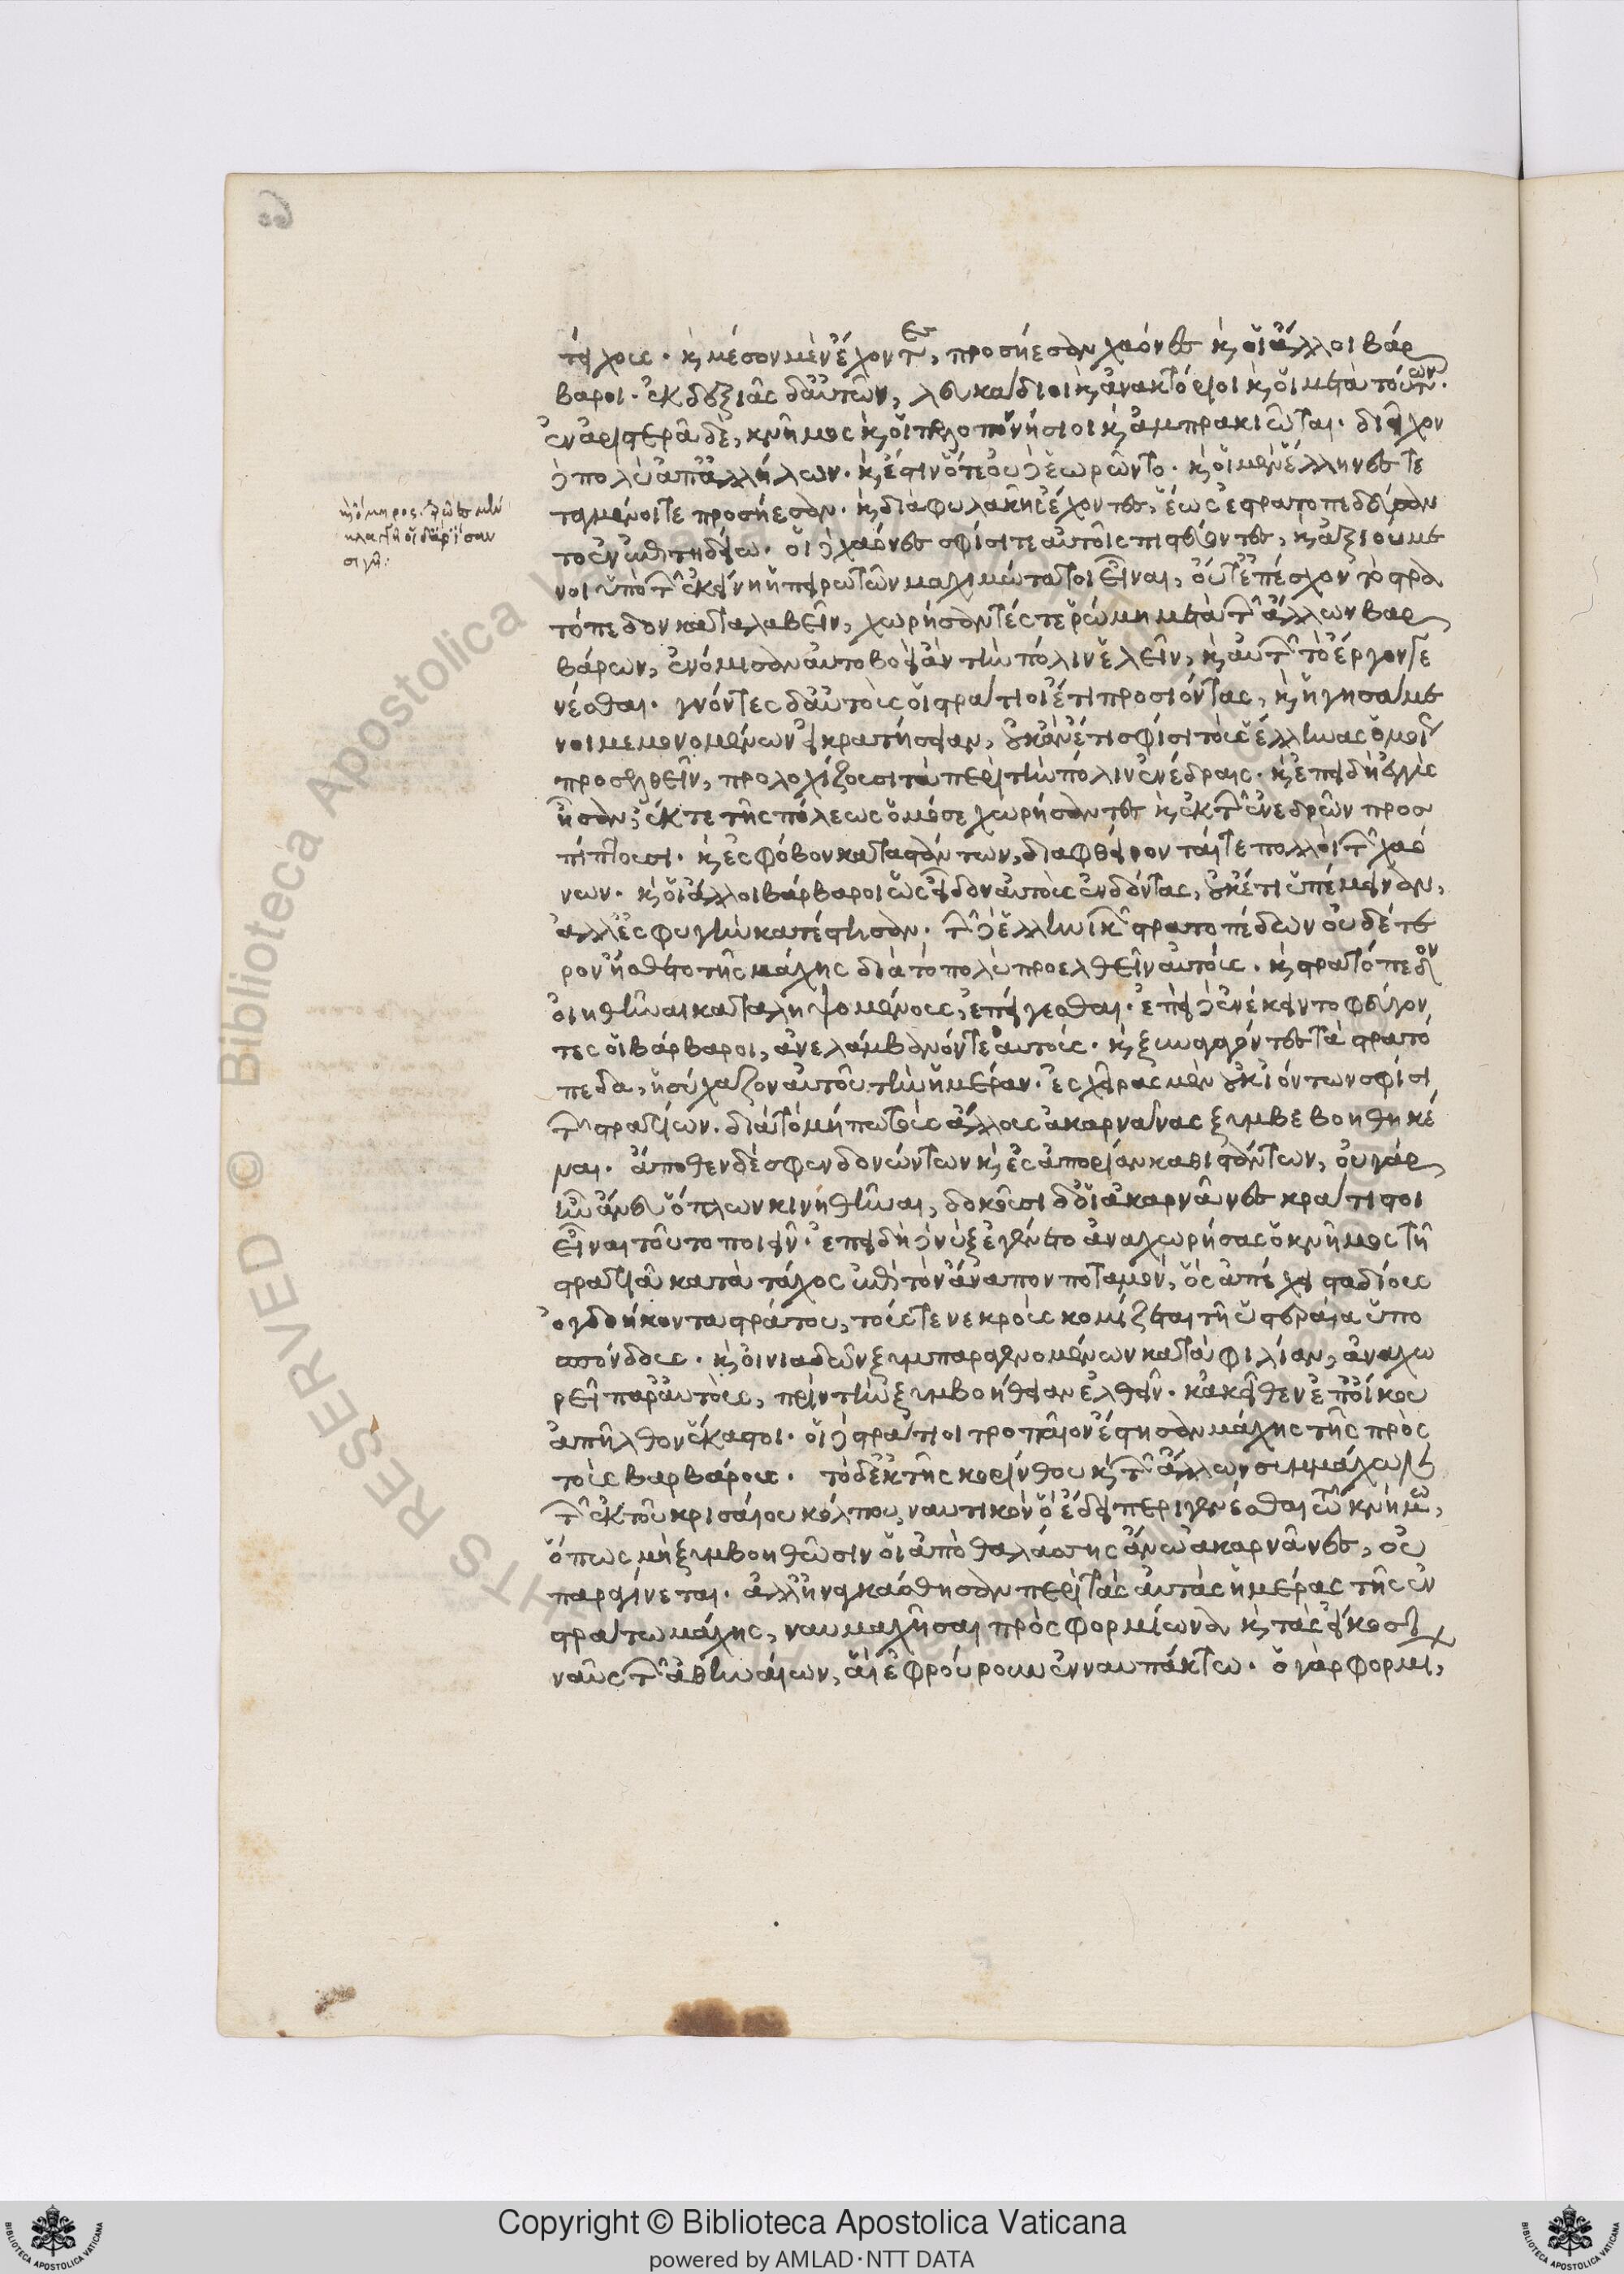 τείχους. καὶ μέσον μὲν ἔχοντες, προσῄεσαν χάονες καὶ οἱ ἄλλοι βάρ
βαροι. ἐκ δεξιᾶς δ' αὐτῶν, λευκάδιοι καὶ ἀνακτόριοι καὶ οἱ μετὰ τούτων.
ἐν ἀριστερᾷ δὲ, κνῆμος καὶ οἱ πελοποννήσιοι καὶ ἀμπρακιῶται. διεῖχον
δὲ πολὺ ἀπ' ἀλλήλων. καὶ ἔστιν ὅτε οὐδὲ ἑωρῶντο. καὶ οἱ μὲν ἕλληνες τε
ταγμένοι τε προσῄεσαν. καὶ διὰ φυλακῆς ἔχοντες, ἕως ἐστρατοπεδεύσαν
το ἐν ἐπιτηδείῳ. οἱ δὲ χάονες σφίσι τε αὐτοῖς πιστεύοντες, καὶ ἀξιούμε
νοι ὑπὸ τῶν ἐκείνῃ ἠπειρωτῶν μαχιμώτατοι εἶναι, οὔτ' ἐπέσχον τὸ στρα
τόπεδον καταλαβεῖν, χωρήσαντές τε ῥώμῃ μετὰ τῶν ἄλλων βαρ
βάρων, ἐνόμισαν αὐτοβοεὶ ἂν τὴν πόλιν ἑλεῖν, καὶ αὐτῶν τὸ ἔργον γε
νέσθαι. γνόντες δ' αὐτοὺς οἱ στράτιοι ἔτι προσιόντας, καὶ ἡγησάμε
νοι μεμονομένων εἰ κρατήσειαν, οὐκ ἂν ἔτι σφίσι τοὺς ἕλληνας ὁμοί
προσελθεῖν, προλοχίζουσι τὰ περὶ τὴν πόλιν ἐνέδραις. καὶ ἐπειδὴ ἐγγὺς
ἦσαν, ἔκ τε τῆς πόλεως ὁμόσε χωρήσαντες καὶ ἐκ τῶν ἐνεδρῶν προσ
πίπτουσι. καὶ ἐς φόβον καταστάντων, διαφθείρονταί τε πολλοὶ τῶν χαό
νων. καὶ οἱ ἄλλοι βάρβαροι ὡς εἶδον αὐτοὺς ἐνδόντας, οὐκέτι ὑπέμειναν,
ἀλλ' ἐς φυγὴν κατέστησαν. τῶν δὲ ἑλληνικῶν στρατοπέδων οὐδέτε
ρον ᾔσθετο τῆς μάχης διὰ τὸ πολὺ προελθεῖν αὐτούς. καὶ στρατόπεδον
οἰηθῆναι καταληψομένους, ἐπείγεσθαι. ἐπεὶ δὲ ἐνέκειντο φεύγον
τες οἱ βάρβαροι, ἀνελάμβανόν τε αὐτούς. καὶ ξυναγαγόντες τὰ στρατό
πεδα, ἡσύχαζον αὐτοῦ τὴν ἡμέραν. ἐς χεῖρας μὲν οὐκ ἰόντων σφίσι
τῶν στρατίων. διὰ τὸ μήπω τοὺς ἄλλους ἀκαρνᾶνας ξυμβεβοηθηκέ
ναι. ἄποθεν δὲ σφενδονώντων καὶ ἐς ἀπορίαν καθιστάντων, οὐ γὰρ
ἦν ἄνευ ὅπλων κινηθῆναι, δοκοῦσι δ' οἱ ἀκαρνᾶνες κράτιστοι
εἶναι τοῦτο ποιεῖν. ἐπειδὴ δὲ νὺξ ἐγένετο ἀναχωρήσας ὁ κνῆμος τῇ
στρατιᾷ κατὰ τάχος ἐπὶ τὸν ἄναπον ποταμόν, ὃς ἀπέχει σταδίους
ὀγδοήκοντα στράτου, τούς τε νεκροὺς κομίζεται τῇ ὑστεραίᾳ ὑπο
σπόνδους. καὶ οἰνιαδῶν ξυμπαραγενομένων κατὰ φιλίαν, ἀναχω
ρεῖ παρ' αὐτοὺς, πρὶν τὴν ξυμβοήθειαν ἐλθεῖν. κἀκεῖθεν ἐπ' οἴκου
ἀπῆλθον ἕκαστοι. οἱ δὲ στράτιοι τροπαῖον ἔστησαν μάχης τῆς πρὸς
τοὺς βαρβάρους. τὸ δ' ἐκ τῆς κορίνθου καὶ τῶν ἄλλων συμμάχων
τῶν ἐκ τοῦ κρισαίου κόλπου, ναυτικὸν ὃ ἔδει περιγενέσθαι τῷ κνήμῳ,
ὅπως μὴ ξυμβοηθῶσιν οἱ ἀπὸ θαλάσσης ἄνω ἀκαρνᾶνες, οὐ
παραγίνεται. ἀλλ' ἠναγκάσθησαν περὶ τὰς αὐτὰς ἡμέρας τῆς ἐν
στράτῳ μάχης, ναυμαχῆσαι πρὸς φορμίωνα καὶ τὰς εἴκοσι
ναῦς τῶν ἀθηναίων, αἳ ἐφρούρουν ἐν ναυπάκτῳ. ὁ γὰρ φορμί,